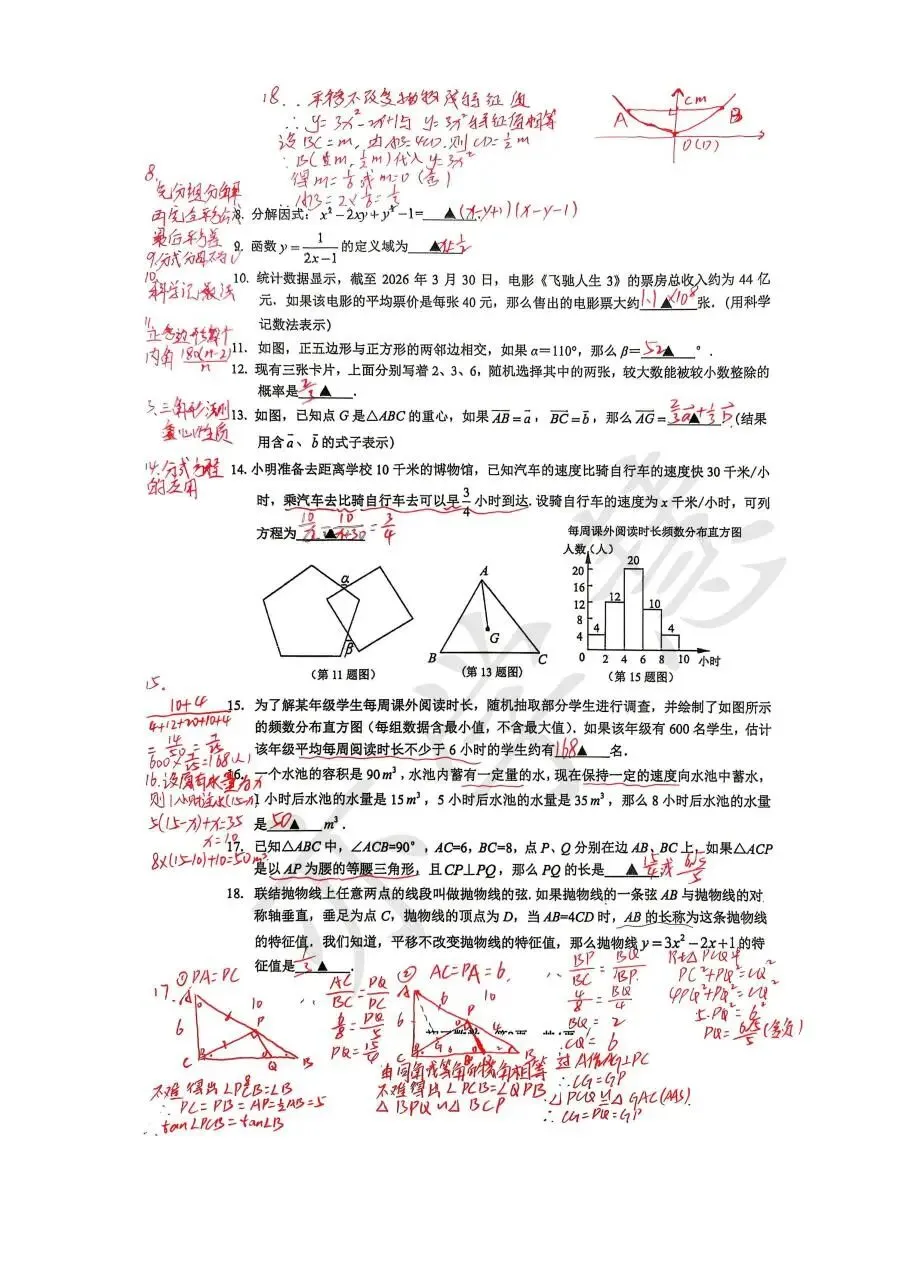 18. ∵平移不改变抛物线特征值
∴ y=3x²-2x+1与 y=3x²特征值相等
设BC=m, 由AB=4CD, 则CD=½m
∴B(m, ½m)代入y=3x²
得m=1/6或m=0(舍)
AB=2×1/6=1/3
A
cm
B
O(D)
8.
先分组分解
再完全平方公式
最后平方差
9.分式分母不为0
10.
科学记数法
11.
正多边形每个
内角 180(n-2)/n
13.三角形法则
重心性质
14.分式方程
的应用
8. 分解因式：x²－2xy＋y²－1=▲(x-y+1)(x-y-1)
9. 函数 y=1/(2x−1) 的定义域为▲x≠½
10. 统计数据显示，截至 2026 年 3 月 30 日，电影《飞驰人生 3》的票房总收入约为 44 亿
元．如果该电影的平均票价是每张 40 元，那么售出的电影票大约1.1▲×10⁸张．(用科学
记数法表示)
11. 如图，正五边形与正方形的两邻边相交，如果 α＝110°，那么 β＝52▲°．
12. 现有三张卡片，上面分别写着 2、3、6，随机选择其中的两张，较大数能被较小数整除的
概率是2/3▲．
13. 如图，已知点 G 是△ABC 的重心，如果 AB⃗=a⃗，BC⃗=b⃗，那么 AG⃗=2/3a⃗▲+1/3b⃗．(结果
用含 a⃗、b⃗ 的式子表示)
14. 小明准备去距离学校 10 千米的博物馆，已知汽车的速度比骑自行车的速度快 30 千米/小
时，乘汽车去比骑自行车去可以早 3/4 小时到达．设骑自行车的速度为 x 千米/小时，可列
方程为 10/x▲-10/(x+30)=3/4
每周课外阅读时长频数分布直方图
人数(人)
20
16
12
8
4
0
4
12
20
10
4
2 4 6 8 10 小时
α
β
A
G
B
C
（第 11 题图）
（第 13 题图）
（第 15 题图）
15.
(10+4)/(4+12+20+10+4)
=14/50=7/25
600×7/25=168(人)
15. 为了解某年级学生每周课外阅读时长，随机抽取部分学生进行调查，并绘制了如图所示
的频数分布直方图（每组数据含最小值，不含最大值）．如果该年级有 600 名学生，估计
该年级平均每周阅读时长不少于 6 小时的学生约有168▲名．
16. 一个水池的容积是 90m³，水池内蓄有一定量的水，现在保持一定的速度向水池中蓄水，
1 小时后水池的水量是 15m³，5 小时后水池的水量是 35m³，那么 8 小时后水池的水量
是50▲m³．
16.设原有水量为x
则1小时注水(15-x)
5(15-x)+x=35
x=10
8×(15-10)+10=50m³
17. 已知△ABC 中，∠ACB=90°，AC=6，BC=8，点 P、Q 分别在边 AB、BC 上，如果△ACP
是以 AP 为腰的等腰三角形，且 CP⊥PQ，那么 PQ 的长是▲15/4或6√5/5
18. 联结抛物线上任意两点的线段叫做抛物线的弦．如果抛物线的一条弦 AB 与抛物线的对
称轴垂直，垂足为点 C，抛物线的顶点为 D，当 AB=4CD 时，AB 的长称为这条抛物线
的特征值．我们知道，平移不改变抛物线的特征值，那么抛物线 y=3x²－2x+1 的特
征值是1/3▲．
17.
①PA=PC
A
10
6
P
C
Q
B
不难得出∠PCB=∠B
∴PC=PB=AP=½AB=5
∴tan∠PCB=tan∠B
∴AC/BC=PQ/PC
6/8=PQ/5
PQ=15/4
② AC=PA=6.
A
10
6
P
4
G
C
Q
B
由同角或等角的余角相等
不难得出∠PCB=∠QPB
△BPQ∽△BCP
∴BP/BC=BQ/BP
4/8=BQ/4
BQ=2
CQ=6
过A作AG⊥PC
∴CG=GP
△PCQ≌△GAC(AAS)
∴CG=PQ=GP
Rt△PCQ中
PC²+PQ²=CQ²
4PQ²+PQ²=CQ²
5·PQ²=6²
PQ=6√5/5(舍负)